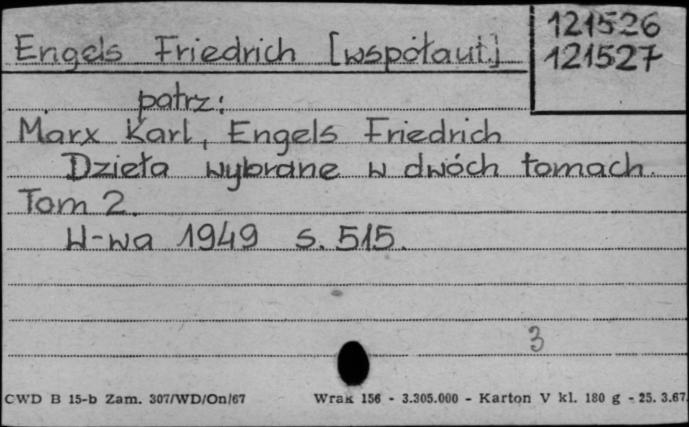 Engels Friedrich [współaut.]
121526
121527
patrz:
Marx Karl, Engels Friedrich
Dzieła wybrane w dwóch tomach.
Tom 2.
W-wa 1949 s. 515.
3
CWD B 15-b Zam. 307/WD/On/67 Wrak 156 - 3.305.000 - Karton V kl. 180 g - 25. 3.67.